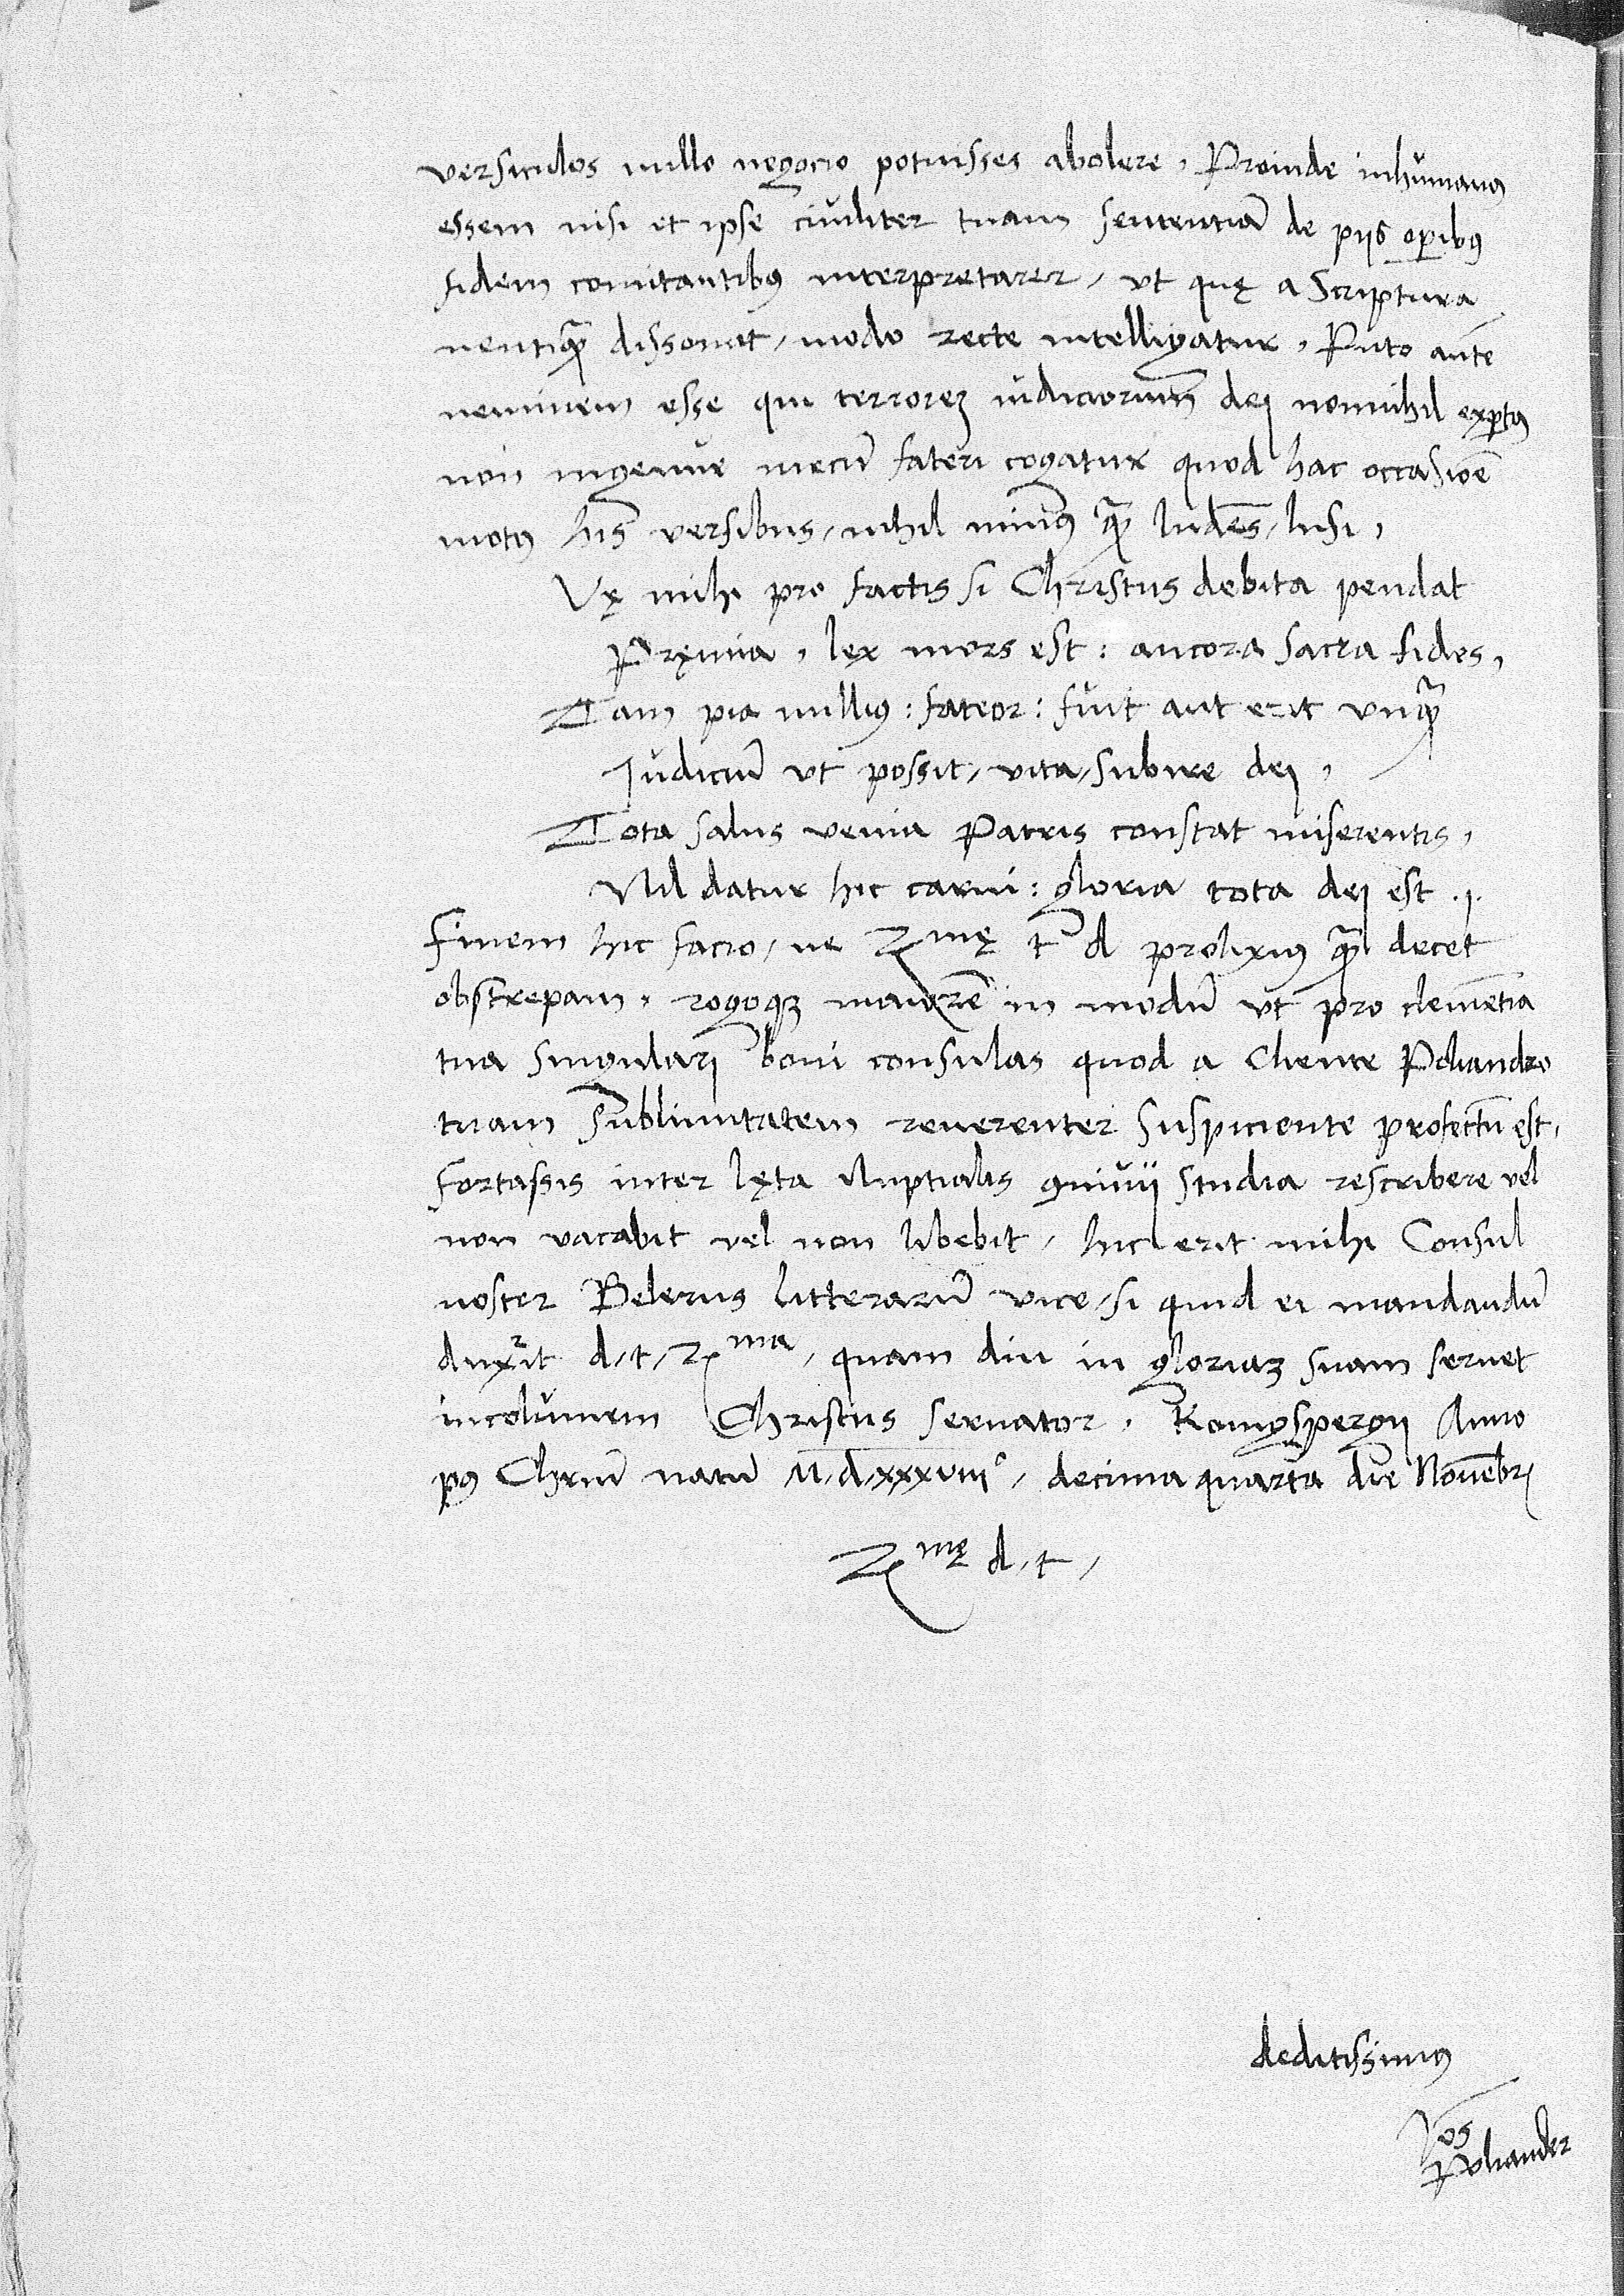 versiculos nullo negocio potuisses abolere, Proinde inhumanus
essem nisi et ipse ciuiliter tuam sententiā de pijs opibus
fidem comitantibus interpretarer, vt quę a Scriptura
neutiquā dissonat, modo recte intelligatur, Puto autē
neminem esse qui terrorem iudiciorum dei nonnihil exptus
non ingenue mecū fateri cogatur quod hac occasiōe
motus his versibus, nihil minus quā ludēs, lusi,
Vę mihi pro factis si Christus debita pendat
Pręmia, lex mors est: ancora sacra fides,
Tam pia nullius: fateor: fuit aut erit vnquā
Judiciū vt possit, vita, subire dei,
Tota salus venia Patris constat miserentis,
Nil datur hic carni: gloria tota dei est.
Finem hic facio, ne Rmę t d prolixius quā decet
obstrepam, rogoque maiorē in modū vt pro clemētia
tua singulari boni consulas quod a Cliente Poliandro
tuam Sublimitatem reuerenter suspiciente profectū est,
fortassis inter lęta Nuptialis conuiuii studia rescribere vel
non vacabit vel non libebit, hic erit mihi Consul
noster Belerus litterarū vice, si quid ei mandandū
duxerit d, t, Rma, quam diu in gloriam suam seruet
incolumem Christus seruator, Konygspergij Anno
post Christū natū M,d,xxxviii°, decima quarta die Nouēbri
Rmę d, t,
deditissimus
Jos
Poliander